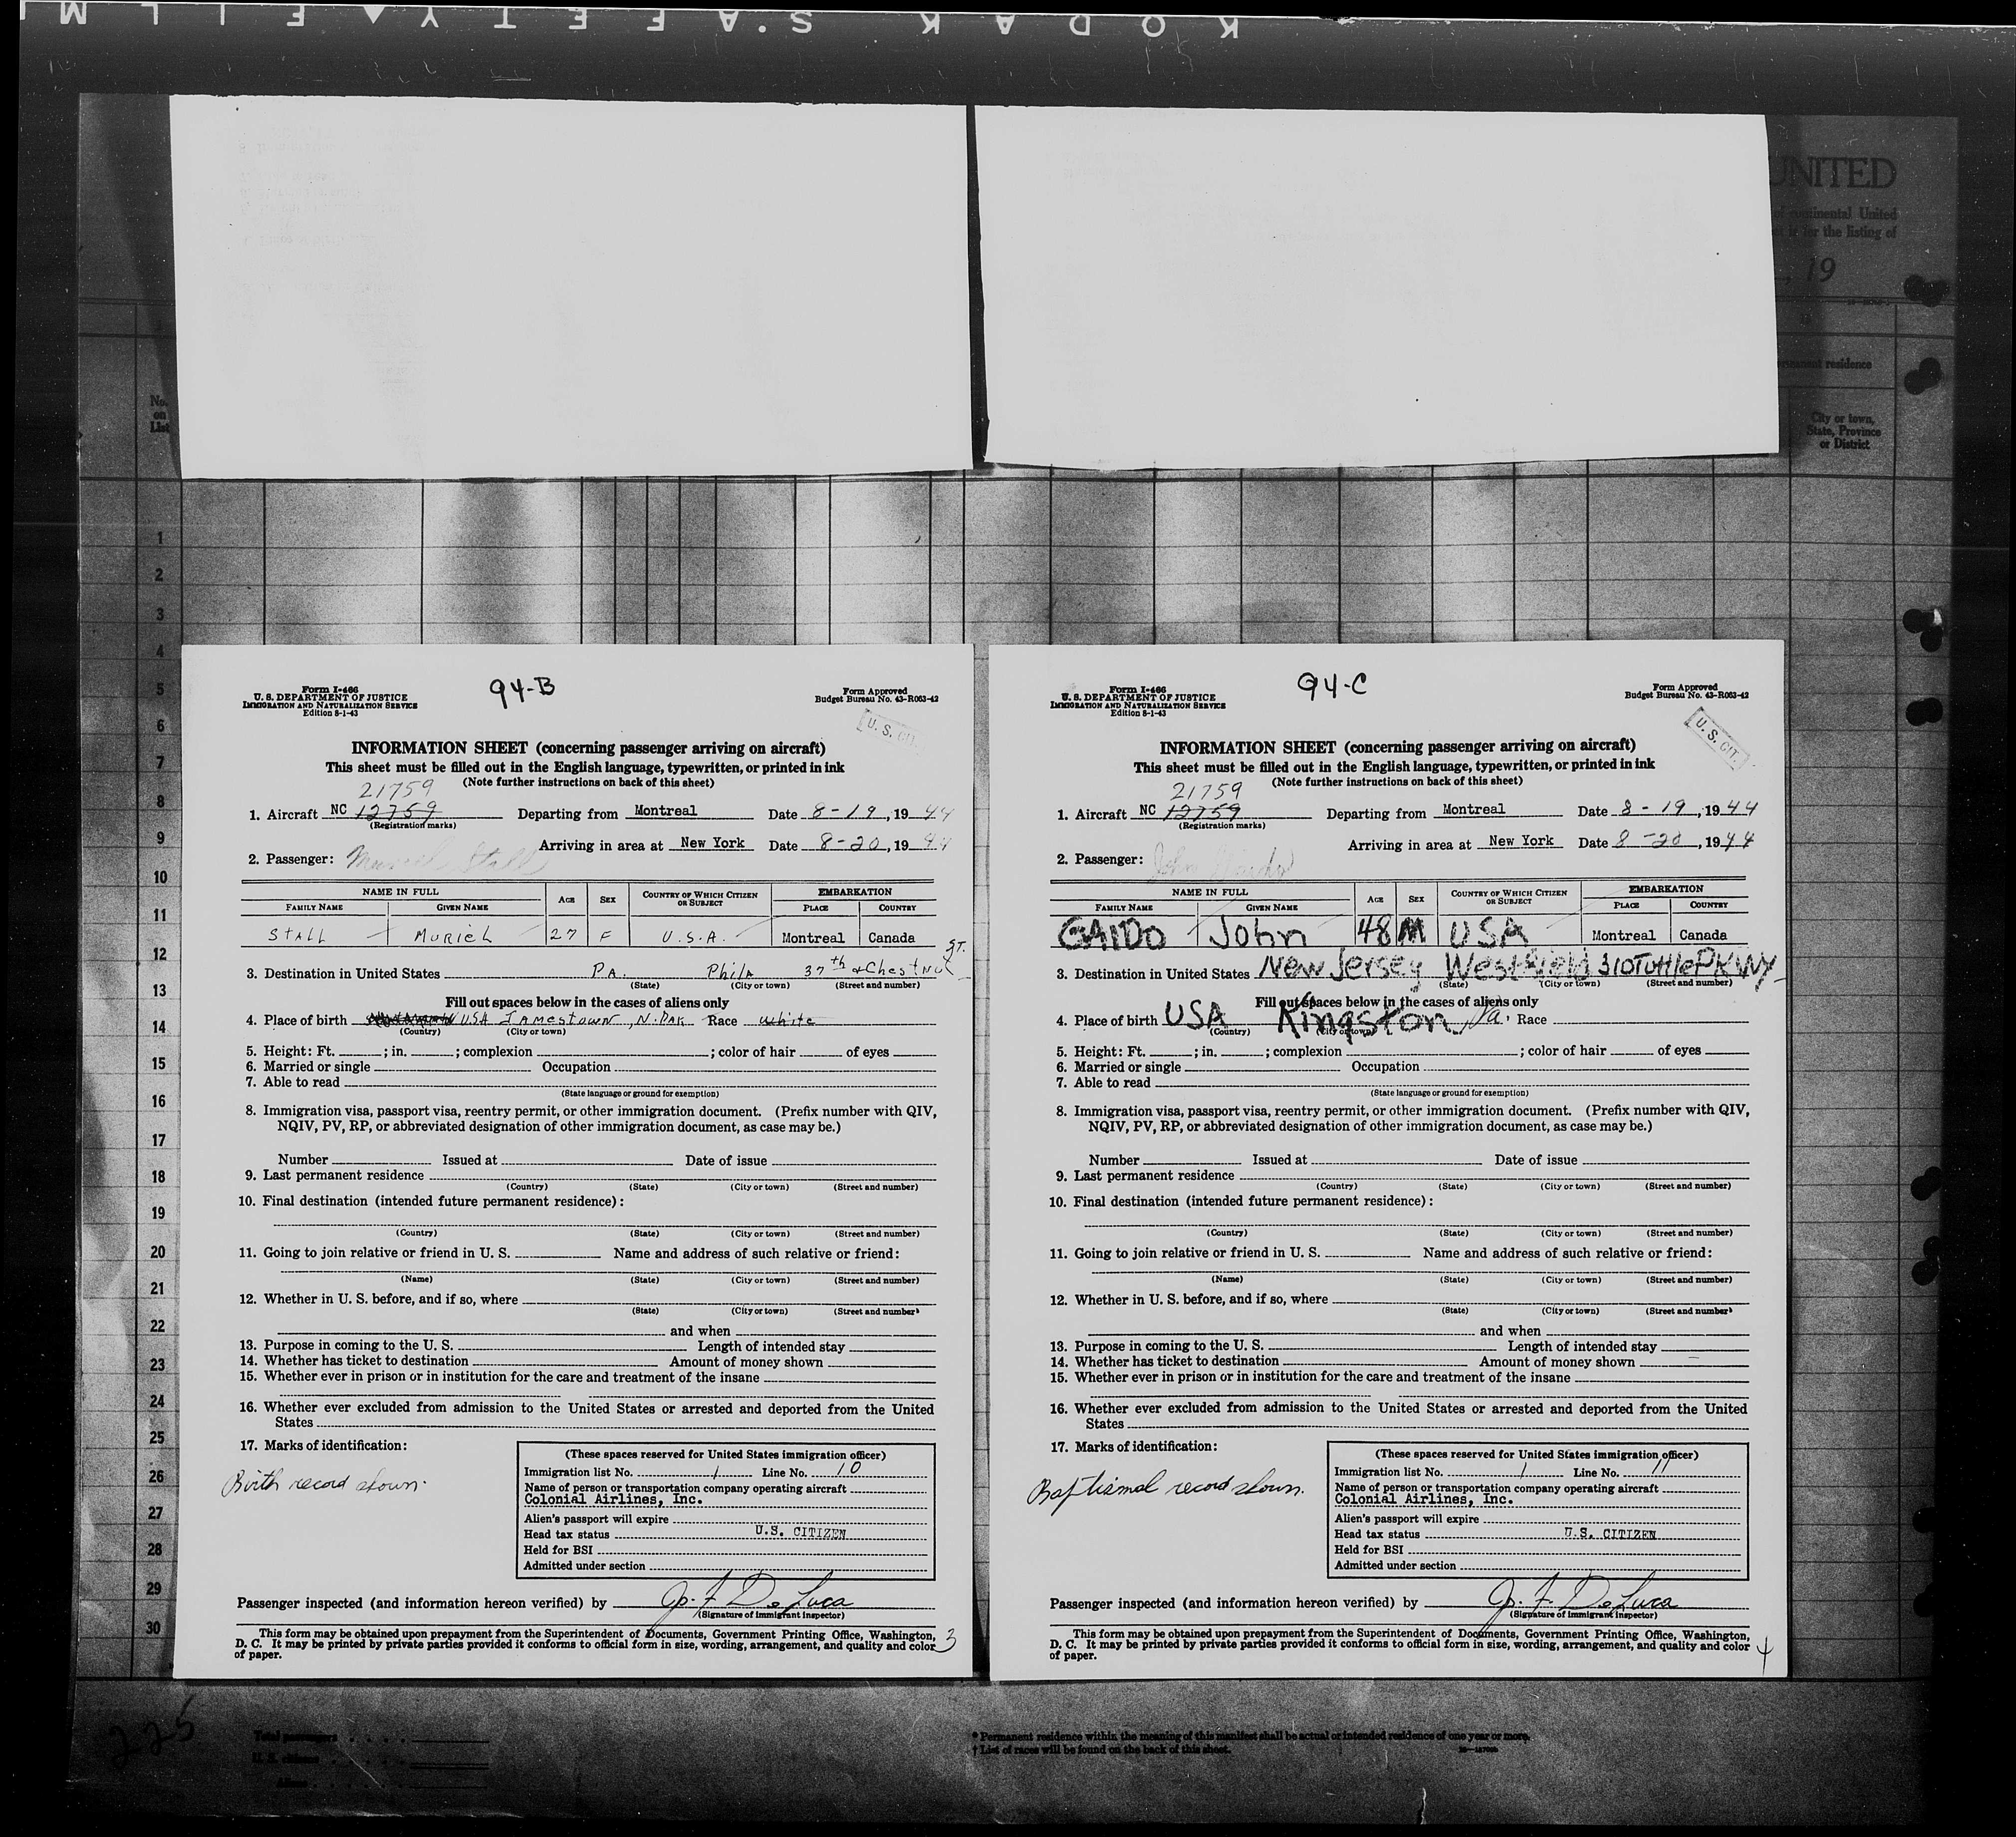 KODAK SAFETY FILM
UNITED
of continental United
for the listing of
, 19
permanent residence
No. on List
City or town, State, Province or District
1
2
3
4
5
6
7
8
9
10
11
12
13
14
15
16
17
18
19
20
21
22
23
24
25
26
27
28
29
30
94-B
Form I-466
U. S. DEPARTMENT OF JUSTICE
IMMIGRATION AND NATURALIZATION SERVICE
Edition 8-1-43
Form Approved
Budget Bureau No. 43-R063-42
U. S. CIT.
INFORMATION SHEET (concerning passenger arriving on aircraft)
This sheet must be filled out in the English language, typewritten, or printed in ink
(Note further instructions on back of this sheet)
21759
1. Aircraft NC 12759 Departing from Montreal Date 8-19, 1944
(Registration marks)
Arriving in area at New York Date 8-20, 1944
2. Passenger: Muriel Stall
NAME IN FULL AGE SEX COUNTRY OF WHICH CITIZEN OR SUBJECT EMBARKATION
FAMILY NAME GIVEN NAME PLACE COUNTRY
STALL MURIEL 27 F U.S.A. Montreal Canada
3. Destination in United States PA. Phila 37th & Chestnut ST.
(State) (City or town) (Street and number)
Fill out spaces below in the cases of aliens only
4. Place of birth USA Jamestown, N. Dak Race white
(Country) (City or town)
5. Height: Ft. ; in. ; complexion ; color of hair of eyes
6. Married or single Occupation
7. Able to read
(State language or ground for exemption)
8. Immigration visa, passport visa, reentry permit, or other immigration document. (Prefix number with QIV,
NQIV, PV, RP, or abbreviated designation of other immigration document, as case may be.)
Number Issued at Date of issue
9. Last permanent residence
(Country) (State) (City or town) (Street and number)
10. Final destination (intended future permanent residence):
(Country) (State) (City or town) (Street and number)
11. Going to join relative or friend in U. S. Name and address of such relative or friend:
(Name) (State) (City or town) (Street and number)
12. Whether in U. S. before, and if so, where
(State) (City or town) (Street and number)
and when
13. Purpose in coming to the U. S. Length of intended stay
14. Whether has ticket to destination Amount of money shown
15. Whether ever in prison or in institution for the care and treatment of the insane
16. Whether ever excluded from admission to the United States or arrested and deported from the United
States
17. Marks of identification:
Birth record shown.
(These spaces reserved for United States immigration officer)
Immigration list No. 1 Line No. 10
Name of person or transportation company operating aircraft
Colonial Airlines, Inc.
Alien's passport will expire
Head tax status U.S. CITIZEN
Held for BSI
Admitted under section
Passenger inspected (and information hereon verified) by Jos. F. De Luca
(Signature of immigrant inspector)
This form may be obtained upon prepayment from the Superintendent of Documents, Government Printing Office, Washington,
D. C. It may be printed by private parties provided it conforms to official form in size, wording, arrangement, and quality and color
of paper.
3
94-C
Form I-466
U. S. DEPARTMENT OF JUSTICE
IMMIGRATION AND NATURALIZATION SERVICE
Edition 8-1-43
Form Approved
Budget Bureau No. 43-R063-42
U. S. CIT.
INFORMATION SHEET (concerning passenger arriving on aircraft)
This sheet must be filled out in the English language, typewritten, or printed in ink
(Note further instructions on back of this sheet)
21759
1. Aircraft NC 12759 Departing from Montreal Date 8-19, 1944
(Registration marks)
Arriving in area at New York Date 8-20, 1944
2. Passenger: John Gaido
NAME IN FULL AGE SEX COUNTRY OF WHICH CITIZEN OR SUBJECT EMBARKATION
FAMILY NAME GIVEN NAME PLACE COUNTRY
GAIDO John 48 M USA Montreal Canada
3. Destination in United States New Jersey Westfield 310 Tuttle PKWY
(State) (City or town) (Street and number)
Fill out spaces below in the cases of aliens only
4. Place of birth USA Kingston, Pa. Race
(Country) (City or town)
5. Height: Ft. ; in. ; complexion ; color of hair of eyes
6. Married or single Occupation
7. Able to read
(State language or ground for exemption)
8. Immigration visa, passport visa, reentry permit, or other immigration document. (Prefix number with QIV,
NQIV, PV, RP, or abbreviated designation of other immigration document, as case may be.)
Number Issued at Date of issue
9. Last permanent residence
(Country) (State) (City or town) (Street and number)
10. Final destination (intended future permanent residence):
(Country) (State) (City or town) (Street and number)
11. Going to join relative or friend in U. S. Name and address of such relative or friend:
(Name) (State) (City or town) (Street and number)
12. Whether in U. S. before, and if so, where
(State) (City or town) (Street and number)
and when
13. Purpose in coming to the U. S. Length of intended stay
14. Whether has ticket to destination Amount of money shown
15. Whether ever in prison or in institution for the care and treatment of the insane
16. Whether ever excluded from admission to the United States or arrested and deported from the United
States
17. Marks of identification:
Baptismal record shown.
(These spaces reserved for United States immigration officer)
Immigration list No. 1 Line No. 11
Name of person or transportation company operating aircraft
Colonial Airlines, Inc.
Alien's passport will expire
Head tax status U.S. CITIZEN
Held for BSI
Admitted under section
Passenger inspected (and information hereon verified) by Jos. F. De Luca
(Signature of immigrant inspector)
This form may be obtained upon prepayment from the Superintendent of Documents, Government Printing Office, Washington,
D. C. It may be printed by private parties provided it conforms to official form in size, wording, arrangement, and quality and color
of paper.
4
225
Total passengers
U. S. citizens
Aliens
* Permanent residence within the meaning of this manifest shall be actual or intended residence of one year or more.
† List of races will be found on the back of this sheet.